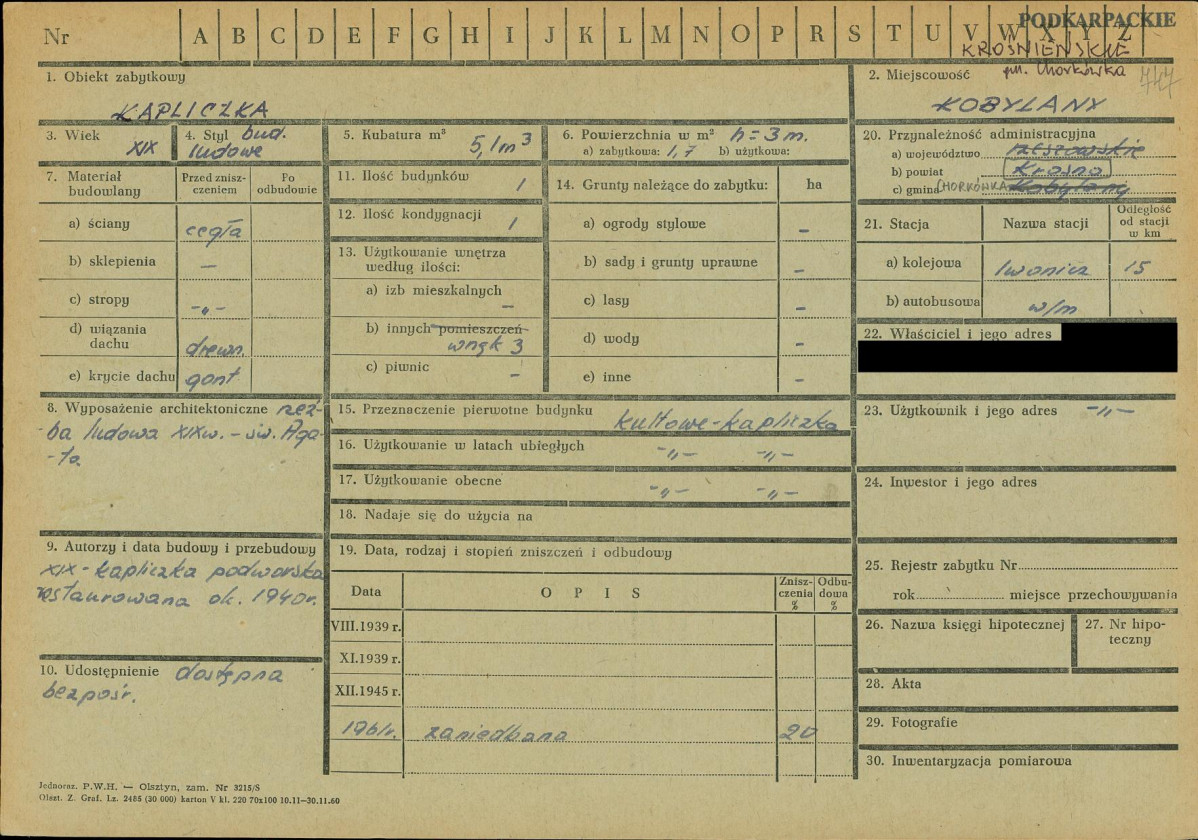 Nr A B C D E F G H I J K L M N O P R S T U V W X Y Z
PODKARPACKIE
KROŚNIEŃSKIE
gm. Chorkówka
747
1. Obiekt zabytkowy
KAPLICZKA
2. Miejscowość
KOBYLANY
3. Wiek
XIX
4. Styl bud.
ludowe
5. Kubatura m³
5,1 m³
6. Powierzchnia w m² h=3m.
a) zabytkowa: 1,7 b) użytkowa:
7. Materiał budowlany
Przed zniszczeniem
Po odbudowie
a) ściany cegła
b) sklepienia —
c) stropy -„-
d) wiązania dachu drewn.
e) krycie dachu gont
8. Wyposażenie architektoniczne rzeź-
ba ludowa XIXw. – św. Aga-
-ta.
9. Autorzy i data budowy i przebudowy
XIX - kapliczka podworska
restaurowana ok. 1940r.
10. Udostępnienie dostępna
bezpośr.
11. Ilość budynków 1
12. Ilość kondygnacji 1
13. Użytkowanie wnętrza
według ilości:
a) izb mieszkalnych –
b) innych pomieszczeń
wnęk 3
c) piwnic –
14. Grunty należące do zabytku: ha
a) ogrody stylowe –
b) sady i grunty uprawne –
c) lasy –
d) wody –
e) inne –
15. Przeznaczenie pierwotne budynku kultowe-kapliczka
16. Użytkowanie w latach ubiegłych -„- -„-
17. Użytkowanie obecne -„- -„-
18. Nadaje się do użycia na
19. Data, rodzaj i stopień zniszczeń i odbudowy
Data O P I S Zniszczenia % Odbudowa %
VIII.1939 r.
XI.1939 r.
XII.1945 r.
1961r. zaniedbana 20
20. Przynależność administracyjna
a) województwo rzeszowskie
b) powiat Krosno
c) gmina CHORKÓWKA Kobylany
21. Stacja Nazwa stacji Odległość od stacji w km
a) kolejowa Iwonicz 15
b) autobusowa w/m
22. Właściciel i jego adres
23. Użytkownik i jego adres -„-
24. Inwestor i jego adres
25. Rejestr zabytku Nr
rok miejsce przechowywania
26. Nazwa księgi hipotecznej
27. Nr hipo-
teczny
28. Akta
29. Fotografie
30. Inwentaryzacja pomiarowa
Jednoraz. P.W.H. — Olsztyn, zam. Nr 3215/S
Olszt. Z. Graf. Lz. 2485 (30 000) karton V kl. 220 70x100 10.11—30.11.60